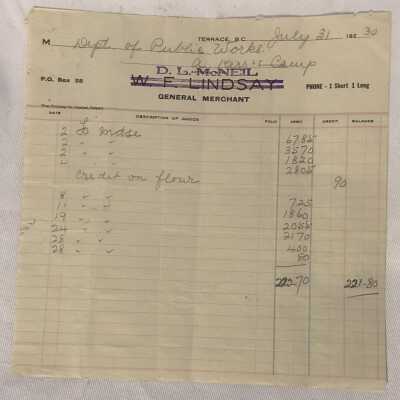 TERRACE, B.C. July 31 192 30
M Dept. of Public Works.
Camp
D. L. McNEIL
P.O. Box 98 W. F. LINDSAY PHONE - 1 Short 1 Long
GENERAL MERCHANT
DATE DESCRIPTION OF GOODS FOLIO DEBIT CREDIT BALANCE
2 To mdse 6785
2 " " 3570
2 " " 1820
" " 2805
Credit on flour 90
8 " " 725
11 " " 1860
19 " " 2055
24 " " 2170
28 " " 400
28 " " 80
222-70 221-80